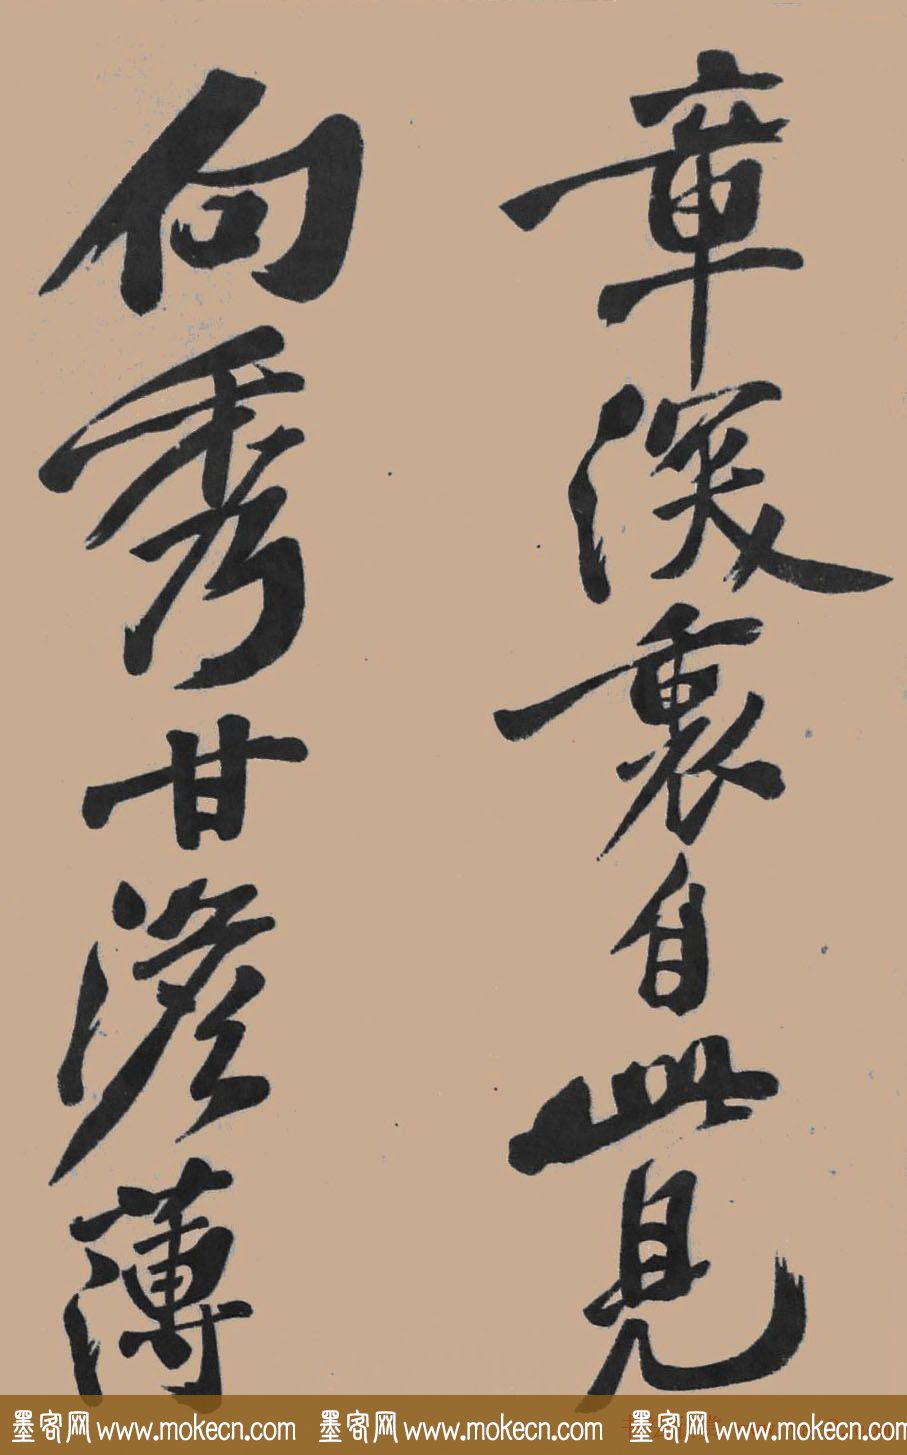 章深衷自此見
向秀甘澹薄
墨客网 www.mokecn.com 墨客网 www.mokecn.com 墨客网 www.mokecn.com